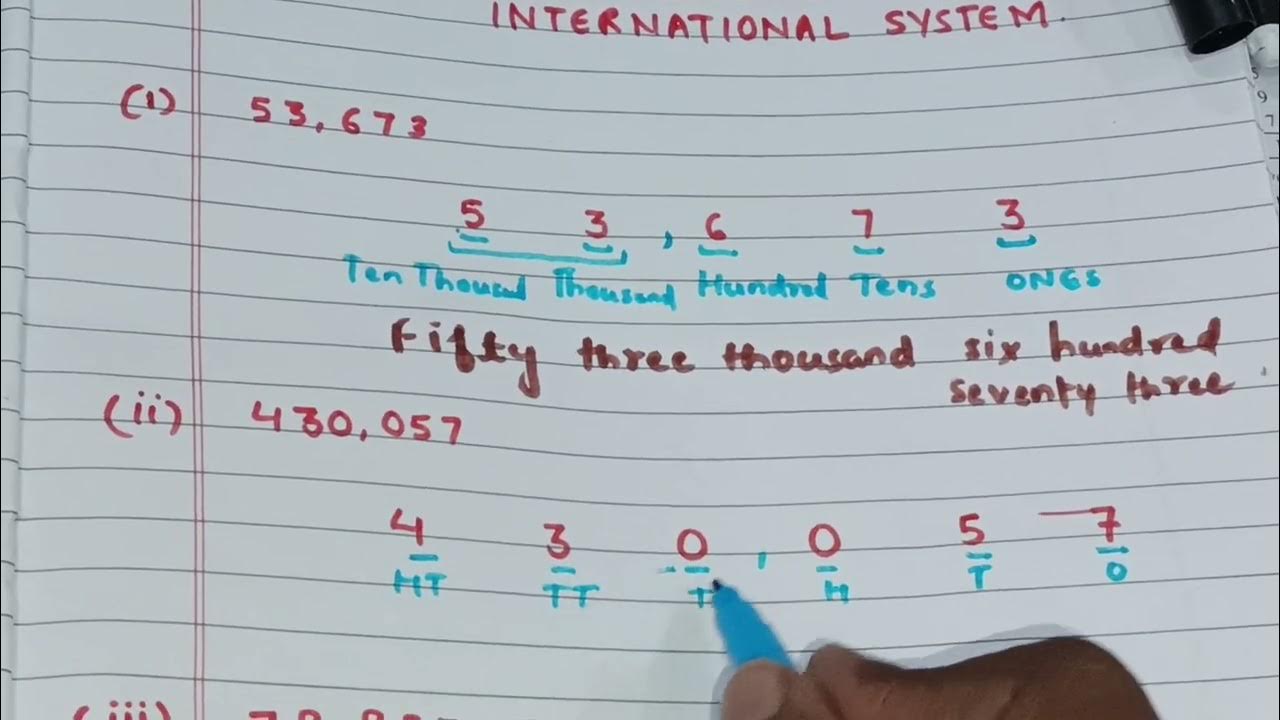 INTERNATIONAL SYSTEM.
(i) 53,673
5 3 , 6 7 3
Ten Thousand Thousand Hundred Tens ONES
Fifty three thousand six hundred
seventy three
(ii) 430,057
4 3 0 , 0 5 7
HT TT T H T O
(iii)